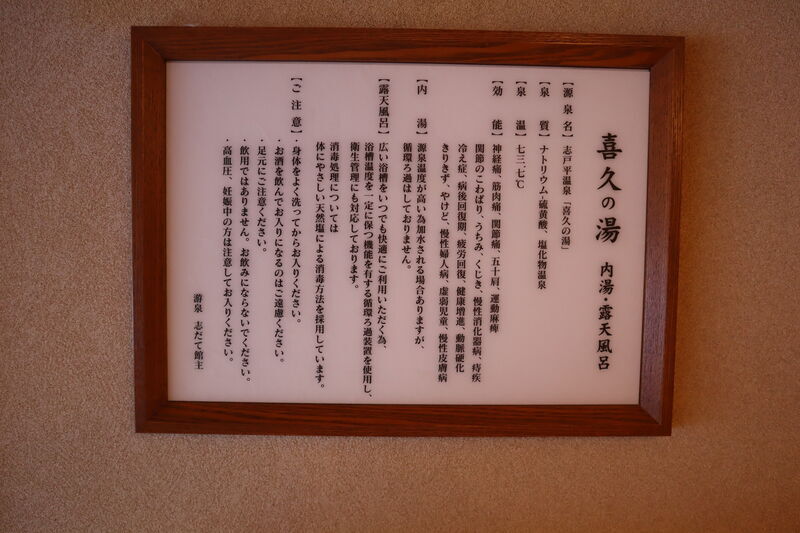 喜久の湯 内湯・露天風呂
【源泉名】志戸平温泉「喜久の湯」
【泉質】ナトリウム-硫黄酸、塩化物温泉
【泉温】七三.七℃
【効能】神経痛、筋肉痛、関節痛、五十肩、運動麻痺
関節のこわばり、うちみ、くじき、慢性消化器病、痔疾
冷え症、病後回復期、疲労回復、健康増進、動脈硬化
きりきず、やけど、慢性婦人病 虚弱児童、慢性皮膚病
【内湯】源泉温度が高い為加水される場合ありますが、
循環ろ過はしておりません。
【露天風呂】広い浴槽をいつでも快適にご利用いただく為、
浴槽温度を一定に保つ機能を有する循環ろ過装置を使用し、
衛生管理にも対応しております。
消毒処理については
体にやさしい天然塩による消毒方法を採用しています。
【ご注意】・身体をよく洗ってからお入りください。
・お酒を飲んでお入りになるのはご遠慮ください。
・足元にご注意ください。
・飲用ではありません。お飲みにならないでください。
・高血圧、妊娠中の方は注意してお入りください。
游泉 志だて館主